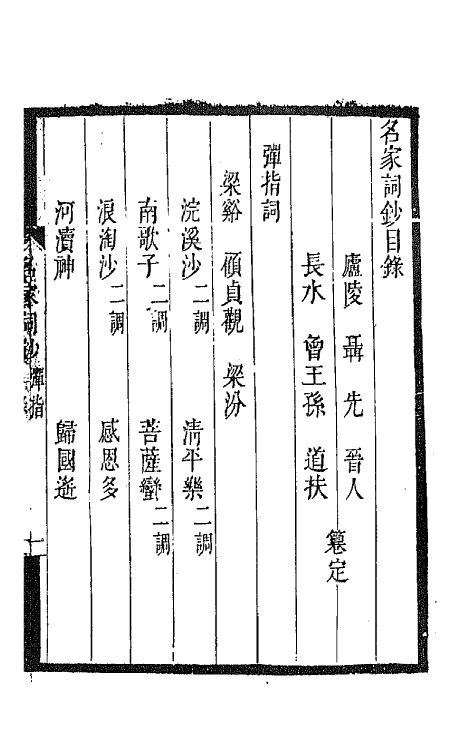 名家詞鈔目錄
廬陵 聶先 晉人
長水 曾王孫 道扶
篹定
彈指詞
梁谿 顧貞觀 梁汾
浣溪沙二調 清平樂二調
南歌子二調 菩薩蠻二調
浪淘沙二調 感恩多
河瀆神 歸國遙
名家詞鈔 彈指